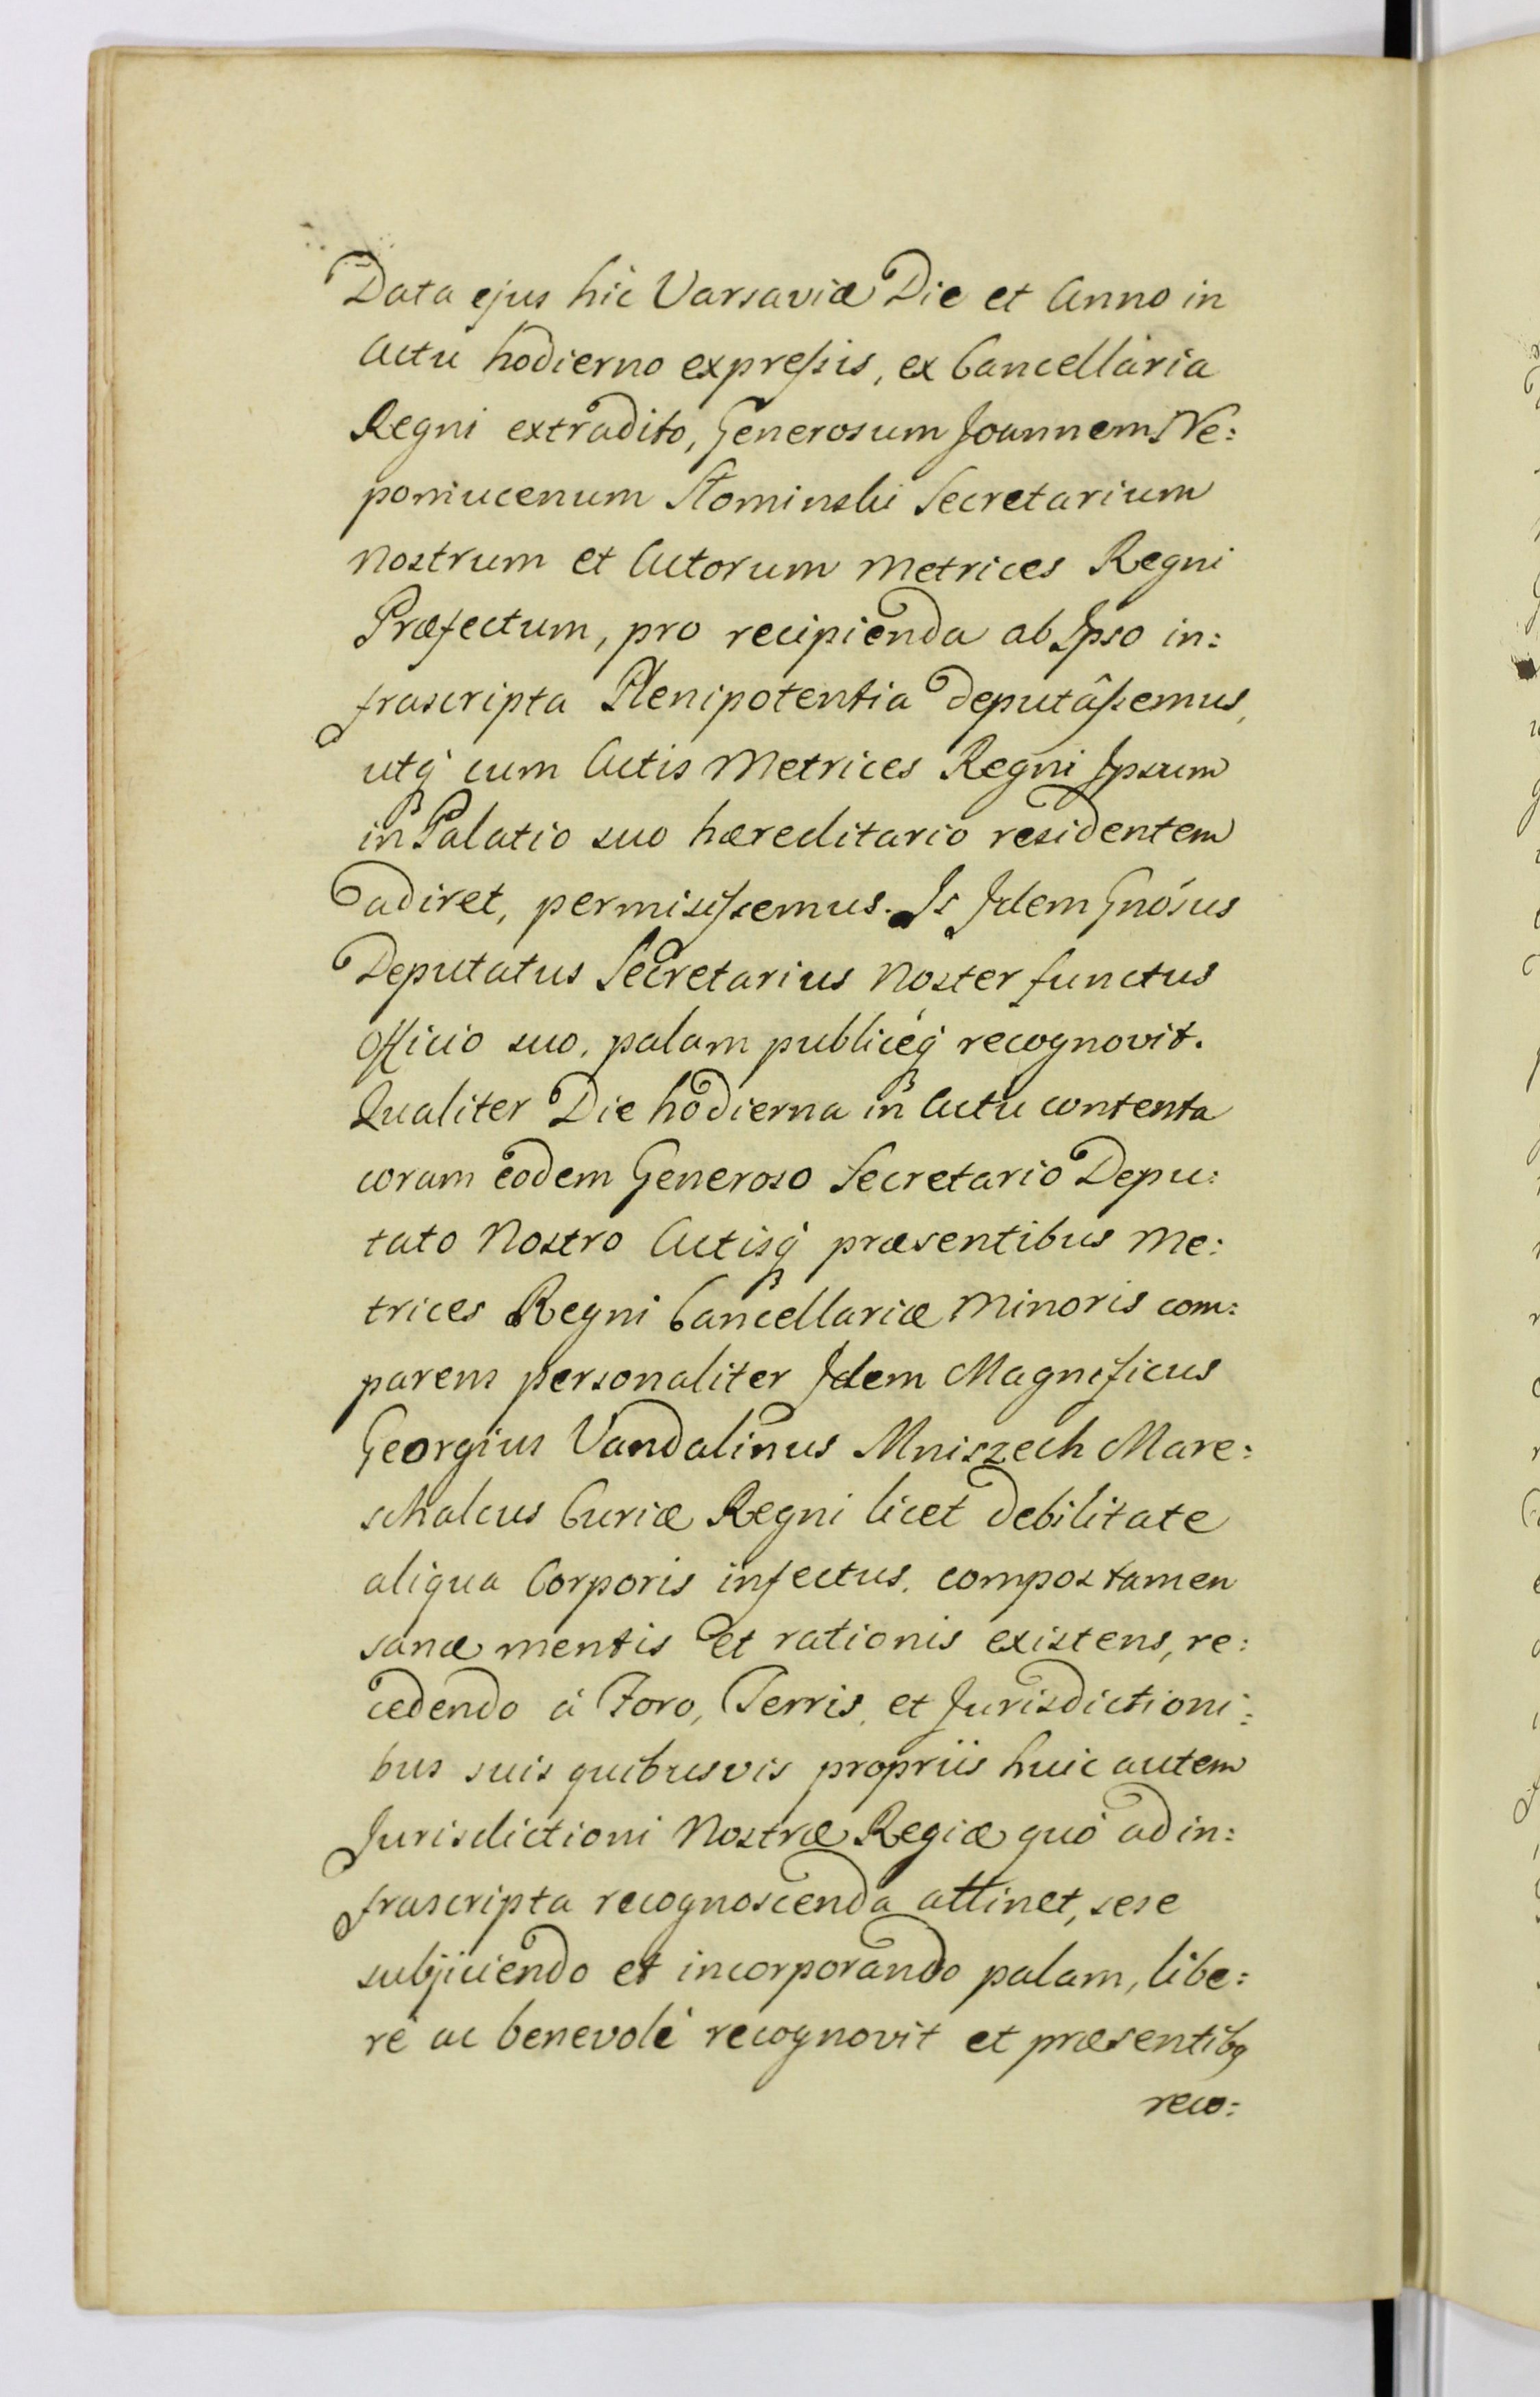 Data ejus hic Varsaviæ Die et Anno in
Actu hodierno expressis, ex Cancellaria
Regni extradito, Generosum Joannem Ne:
pomucenum Słominski Secretarium
Nostrum et Actorum Metrices Regni
Præfectum, pro recipienda ab Ipso in:
frascripta Plenipotentia deputâssemus,
utq́ cum Actis Metrices Regni Ipsum
in Palatio suo hæreditario residentem
adiret, permisissemus. Is Idem Gnósus
Deputatus Secretarius Noster functus
Officio suo, palam publicéq́ recognovit.
Qualiter Die hodierna in Actu contenta
coram eodem Generoso Secretario Depu:
tato Nostro Actisq́ præsentibus Me:
trices Regni Cancellariæ Minoris com:
parens personaliter Idem Magnificus
Georgius Vandalinus Mniszech Mare:
schalcus Curiæ Regni licet debilitate
aliqua Corporis infectus, compos tamen
sanæ mentis et rationis existens, re:
cedendo á Foro, Terris, et Jurisdictioni:
bus suis quibusvis propriis huic autem
Jurisdictioni Nostræ Regiæ quó ad in:
frascripta recognoscenda attinet, sese
subjiciendo et incorporando palam, libe:
ré ac benevolé recognovit et præsentibq
reco: